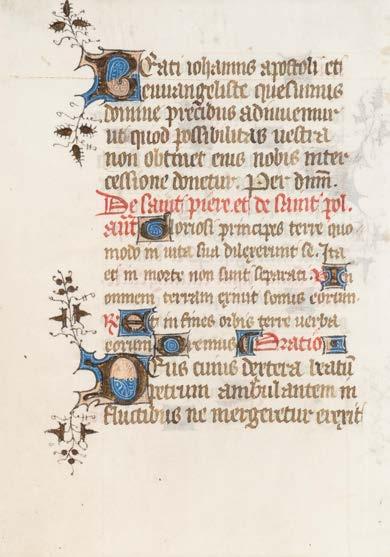 Beati iohannis apostoli et
evvangeliste quesumus
domine precibus adiuvemur
ut quod possibilitas nostra
non obtinet eius nobis inter
cessione donetur. Per dnm.
De saint piere. et de saint pol.
añt Gloriosi principes terre quo
modo in vita sua dilexerunt se. Ita
et in morte non sunt separati. V In
omnem terram exivit sonus eorum.
R. Et in fines orbis terre verba
eorum. Oremus Oratio
Deus cuius dextera beatum
petrum ambulantem in
fluctibus ne mergeretur erexit